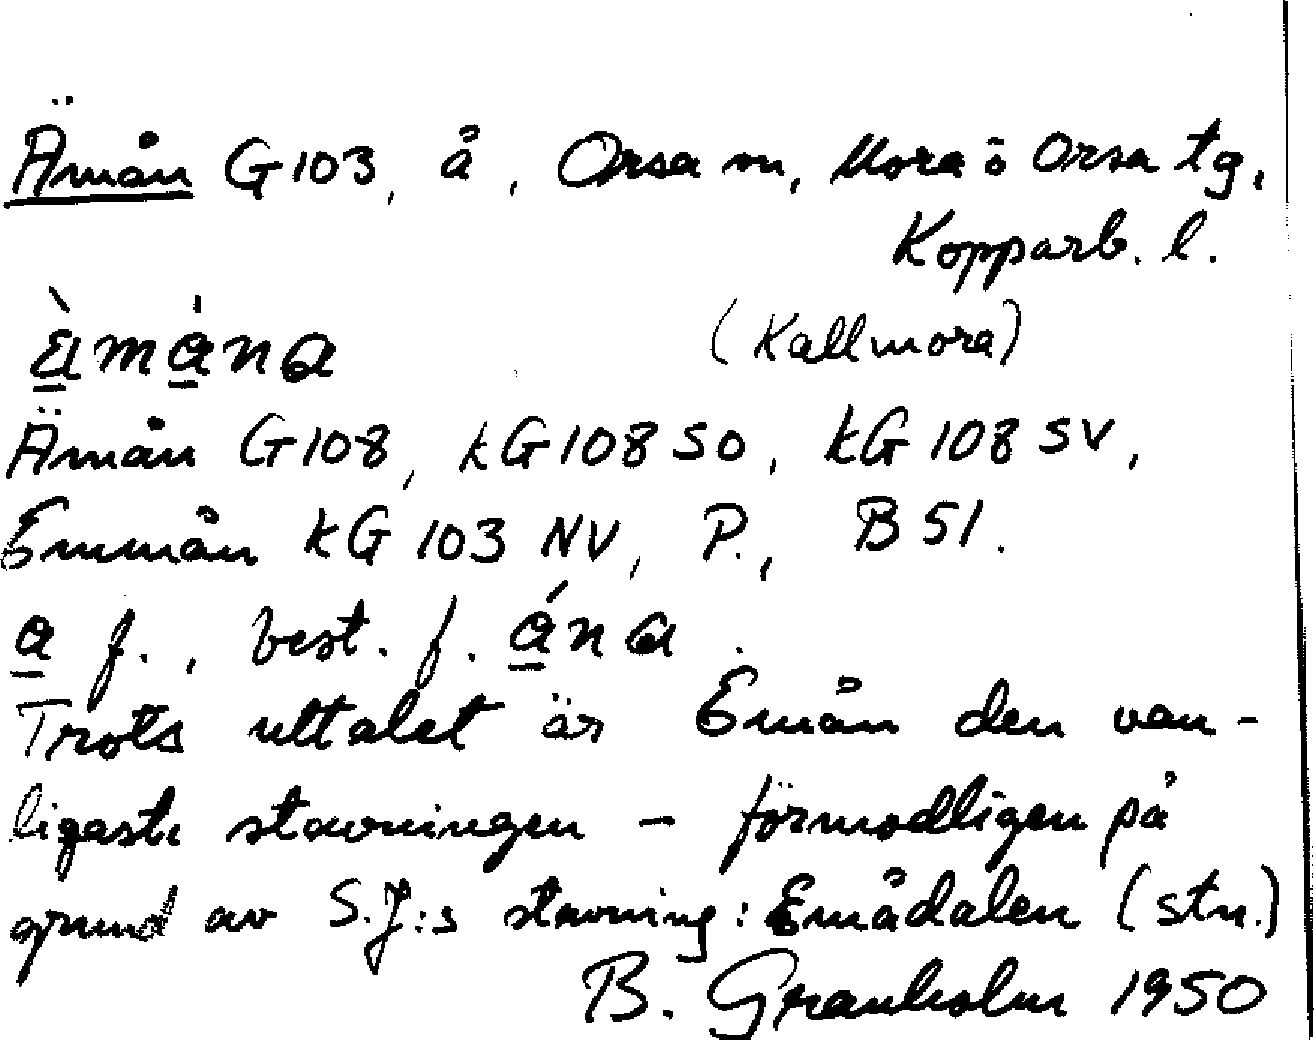 Ämån G103, å, Orsa sn, Mora o Orsa tg,
Kopparb. l.
(Kallmora)
Ämån G108, kG108 SO, kG 108 SV,
Emmån kG 103 NV, P., B 51.
a f., best. f. ána.
Trots uttalet är Emån den van-
ligaste stavningen – förmodligen på
grund av S.J:s stavning: Emådalen (stn.)
B. Granholm 1950